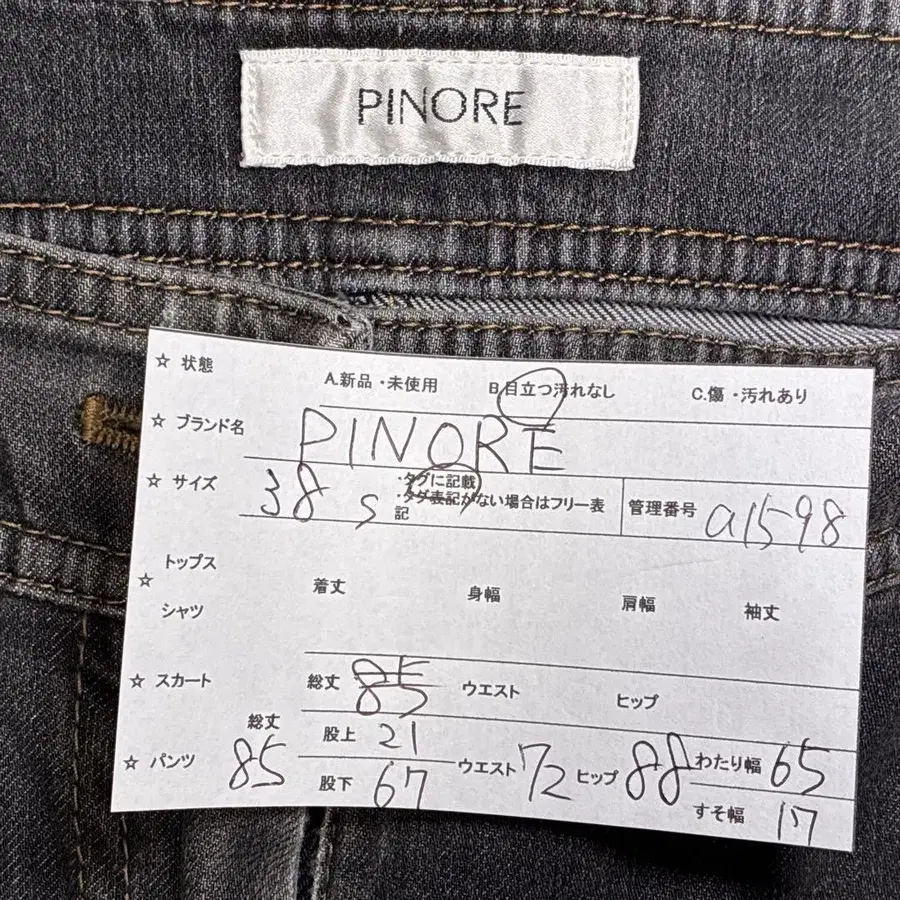 PINORE
☆ 状態 A.新品・未使用 B.目立つ汚れなし C.傷・汚れあり
☆ ブランド名 PINORE
☆ サイズ 38 S ・タグに記載 管理番号 a1598
・タグ表記がない場合はフリー表記
☆ トップス シャツ 着丈 身幅 肩幅 袖丈
☆ スカート 総丈 85 ウエスト ヒップ
☆ パンツ 総丈 85 股上 21 ウエスト 72 ヒップ 88 わたり幅 65
股下 67 すそ幅 17